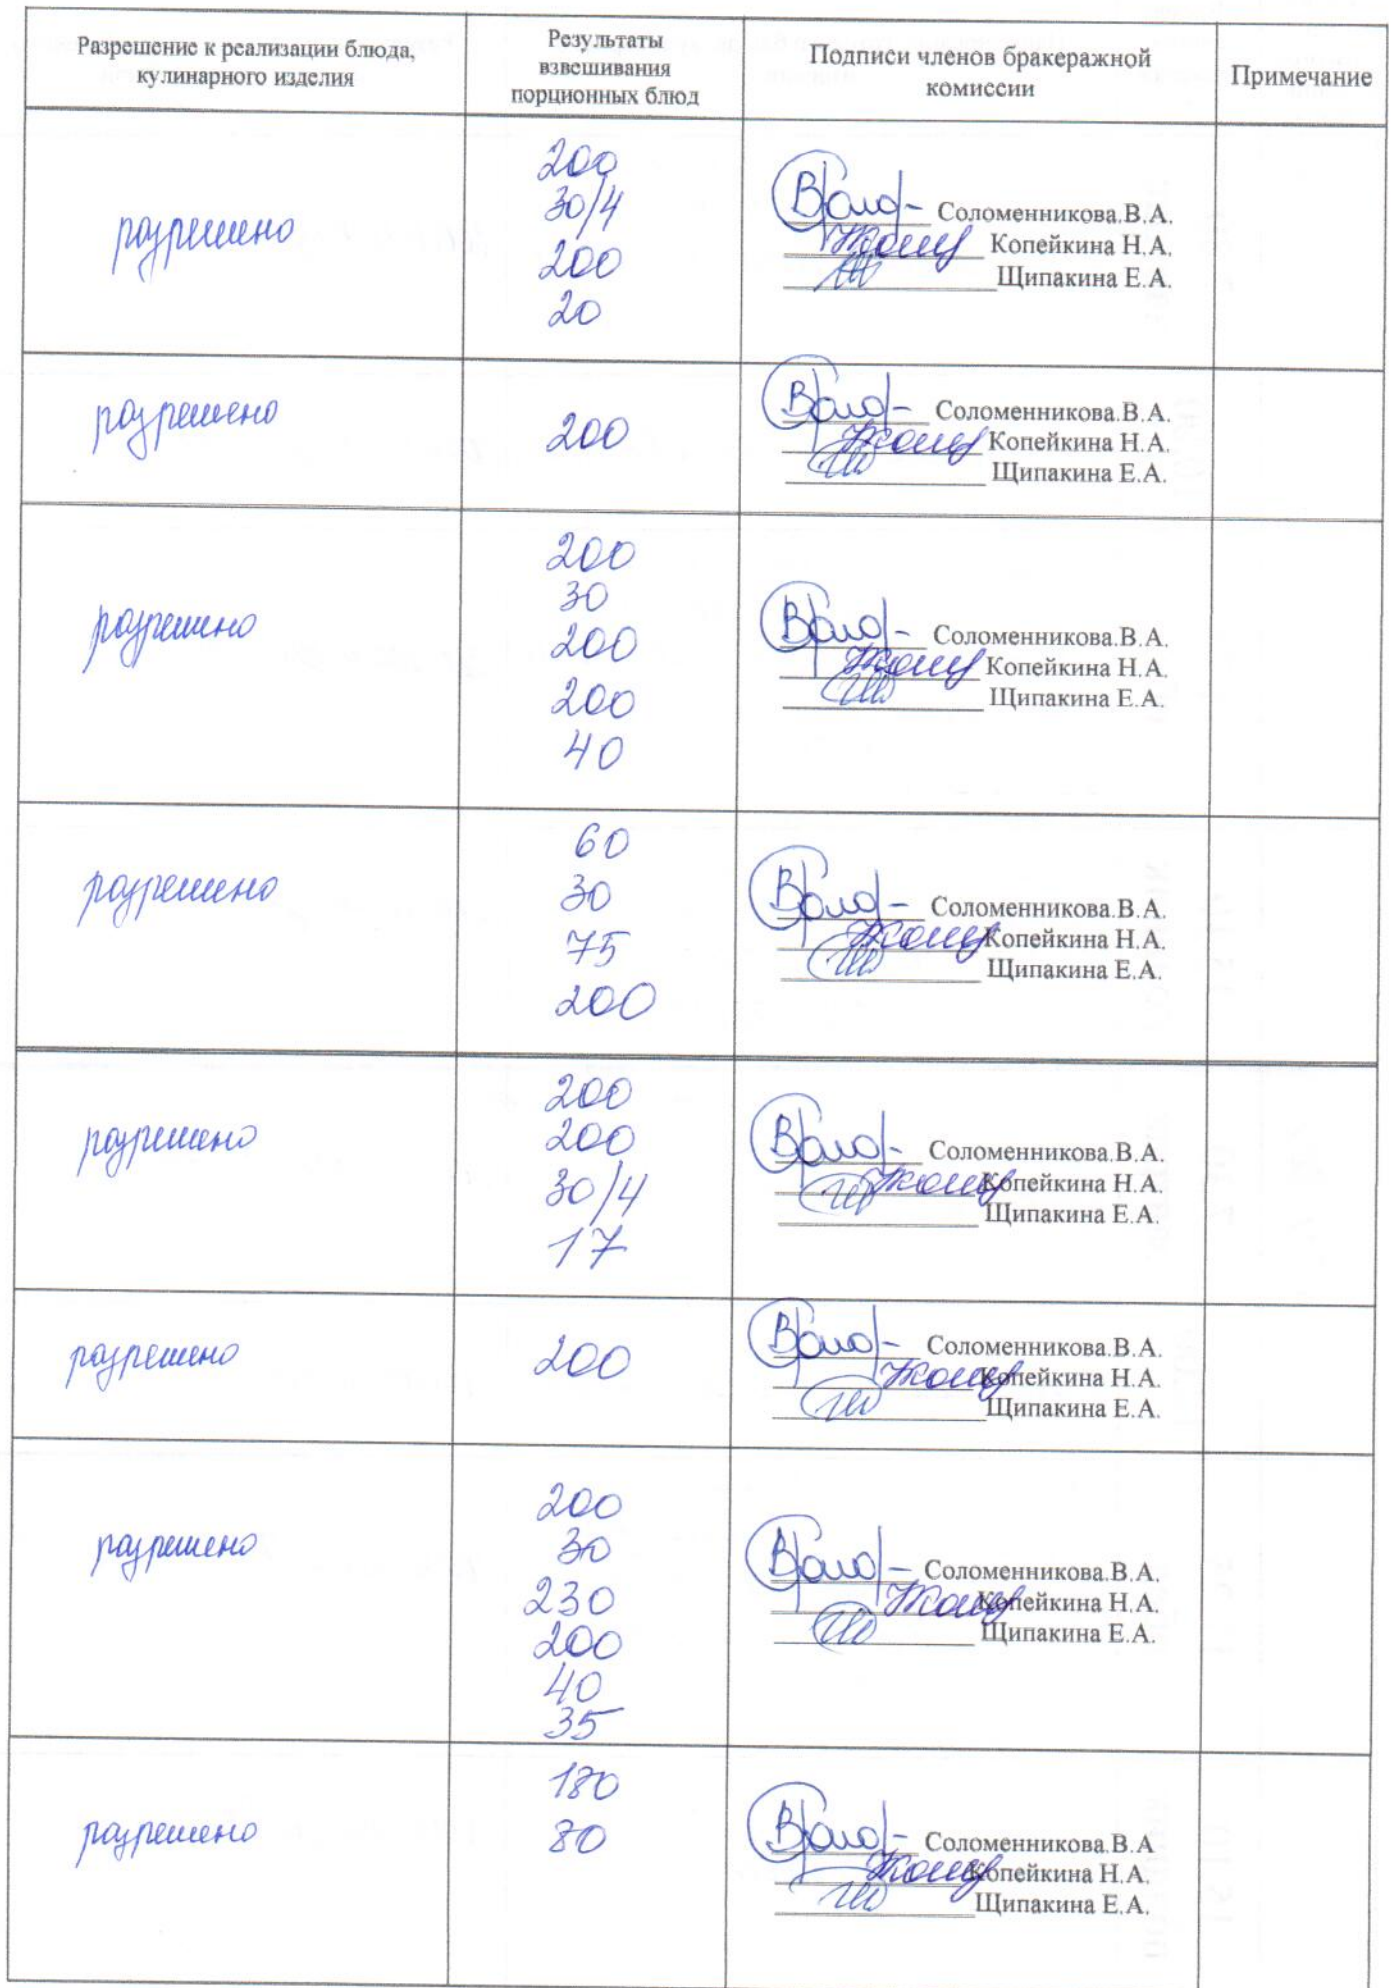 Разрешение к реализации блюда,
кулинарного изделия
Результаты
взвешивания
порционных блюд
Подписи членов бракеражной
комиссии
Примечание
разрешено
200
30/4
200
20
Соломенникова.В.А.
Копейкина Н.А.
Щипакина Е.А.
разрешено
200
Соломенникова.В.А.
Копейкина Н.А.
Щипакина Е.А.
разрешено
200
30
200
200
40
Соломенникова.В.А.
Копейкина Н.А.
Щипакина Е.А.
разрешено
60
30
75
200
Соломенникова.В.А.
Копейкина Н.А.
Щипакина Е.А.
разрешено
200
200
30/4
17
Соломенникова.В.А.
Копейкина Н.А.
Щипакина Е.А.
разрешено
200
Соломенникова.В.А.
Копейкина Н.А.
Щипакина Е.А.
разрешено
200
30
230
200
40
35
Соломенникова.В.А.
Копейкина Н.А.
Щипакина Е.А.
разрешено
180
80
Соломенникова.В.А
Копейкина Н.А.
Щипакина Е.А.